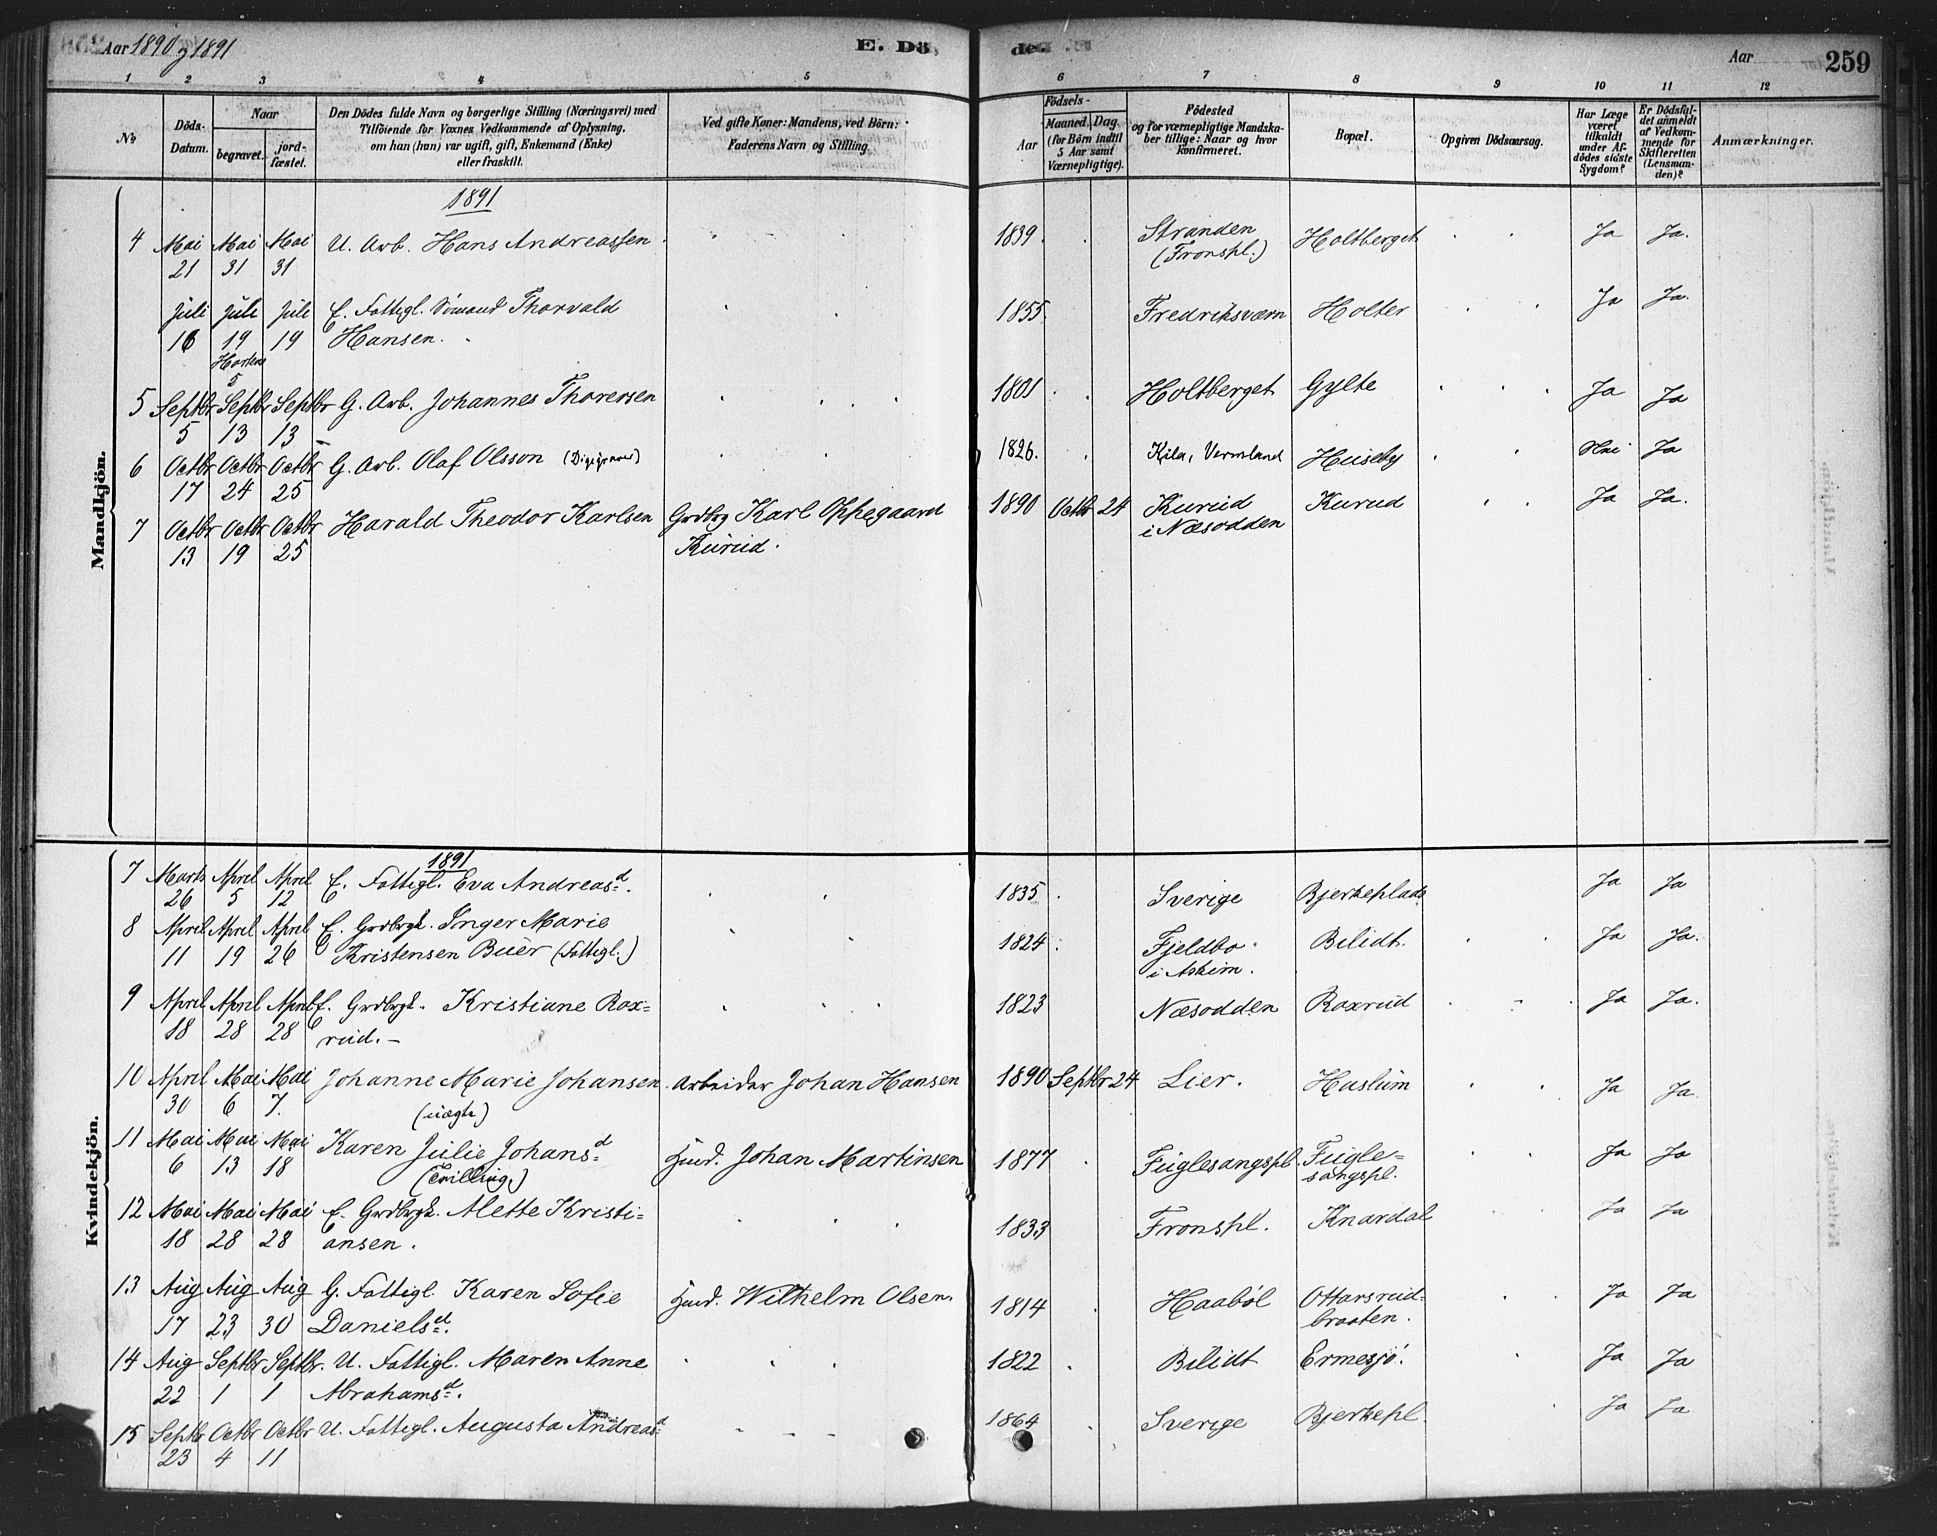 Aar 1890 g 1891 E. Dö de. Aar 259
1 2 3 4 5 6 7 8 9 10 11 12
No
Döds-Datum.
Naar
begravet.
jord-fæstet.
Den Dödes fulde Navn og borgerlige Stilling (Næringsvei) med
Tilföiende for Voxnes Vedkommende af Oplysning,
om han (hun) var ugift, gift, Enkemand (Enke)
eller fraskilt.
Ved gifte Koner: Mandens, ved Börn:
Faderens Navn og Stilling.
Födsels-
Aar
Maaned. Dag.
(for Börn indtil
5 Aar samt
Værnepligtige).
Födested
og for værnepligtige Mandska-
ber tillige: Naar og hvor
konfirmeret.
Bopæl.
Opgiven Dödsaarsag.
Har Læge
været
tilkaldt
under Af-
dödes sidste
Sygdom?
Er Dödsfal-
det anmeldt
af Vedkom-
mende for
Skifteretten
(Lensman-
den)?
Anmærkninger.
Mandkjön.
1891
4 Mai Mai Mai U. Arb. Hans Andreassen 1839 Stranden Holtberget Ja Ja.
21 31 31 (Fronspl.)
Juli Juli Juli E. Fattigl. Sömand Thorvald 1855 Fredriksværn Holter Ja Ja.
16 19 19 Hansen.
Horten
5
5 Septbr Septbr Septbr G. Arb. Johannes Thoresen 1801 Holtberget Gylte Ja Ja
5 13 13
6 Octbr Octbr Octbr G. Arb. Olaf Olsson (Digegraver) 1826. Kila, Vermland Huseby Nei Ja
17 24 25
7 Octbr Octbr Octbr Harald Theodor Karlsen Grdbrg Karl Oppegaard 1890 Octbr 24 Kurud Kurud Ja Ja.
13 19 25 Kurud. i Næsodden
Kvindekjön.
1891
7 Marts April April E. Fattigl. Eva Andreasd. 1835 Sverige Bjerkeplads Ja Ja
26 5 12
8 April April April E. Grdbrgk. Inger Marie 1824 Fjeldbo Bilidt. Ja Ja.
11 19 26 Kristensen Buer (Fattigl.) i Askim.
9 April April April E. Grdbrgk. Kristiane Rox- 1823 Næsodden Roxrud Ja Ja.
18 28 28 rud.
10 April Mai Mai Johanne Marie Johansen Arbeider Johan Hansen 1890 Septbr 24 Lier. Haslum Ja Ja.
30 6 7. (uægte)
11 Mai Mai Mai Karen Julie Johansd Hmd. Johan Martinsen 1877 Fuglesangspl. Fugle- Ja Ja
6 13 18 (Tvilling.) sangspl.
12 Mai Mai Mai E. Grdbrgk. Mette Kristi- 1833 Fronspl. Knardal Ja Ja
18 28 28 ansen.
13 Aug Aug Aug G. Fattigl. Karen Sofie Hmd. Wilhelm Olsen. 1814 Haaböl Ottarsrud- Ja Ja
17 23 30 Danielsd. braaten.
14 Aug Septbr Septbr. U. Fattigl. Maren Anne 1822 Bilidt Ermesjö. Ja Ja
22 1 1 Abrahamsd.
15 Septbr Octbr Octbr U. Fattigl. Augusta Andreasd 1864 Sverige Bjerkepl Ja Ja
23 4 11